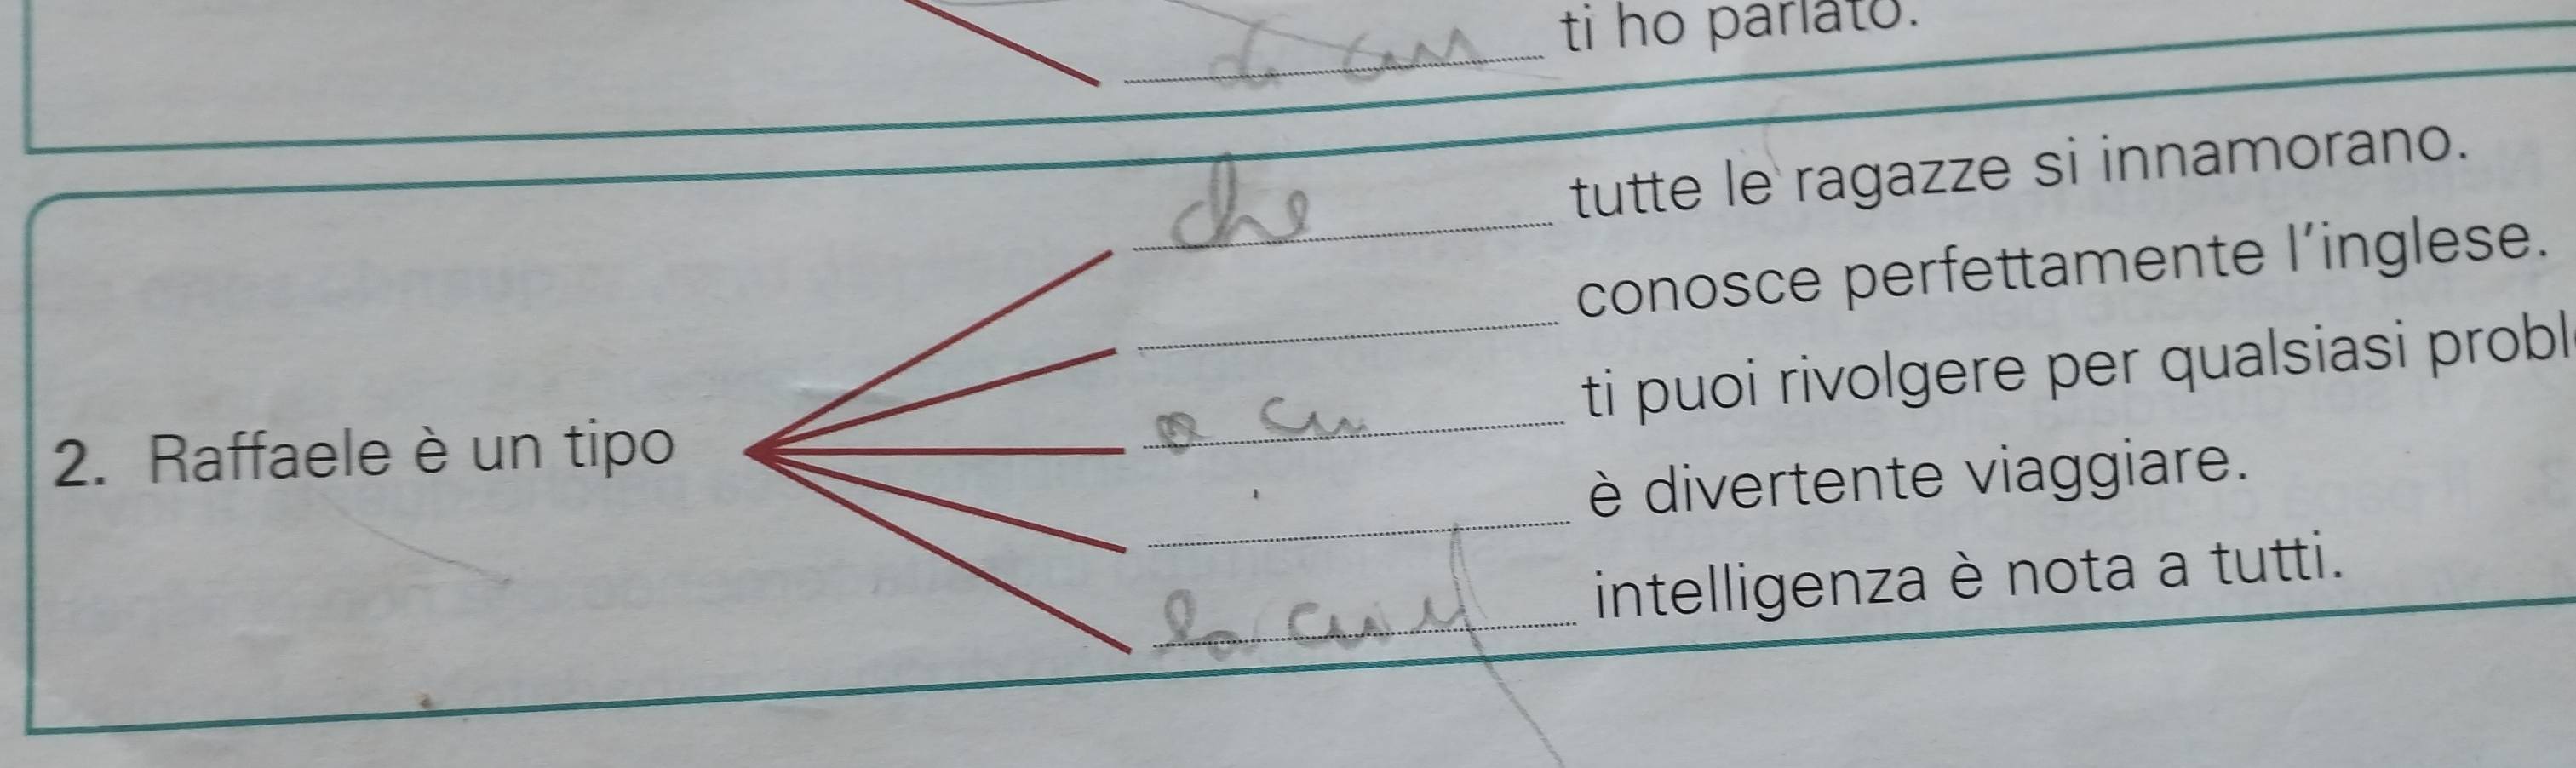 di cui ti ho parlato.
che tutte le ragazze si innamorano.
conosce perfettamente l'inglese.
a cui ti puoi rivolgere per qualsiasi probl
2. Raffaele è un tipo
è divertente viaggiare.
la cui intelligenza è nota a tutti.